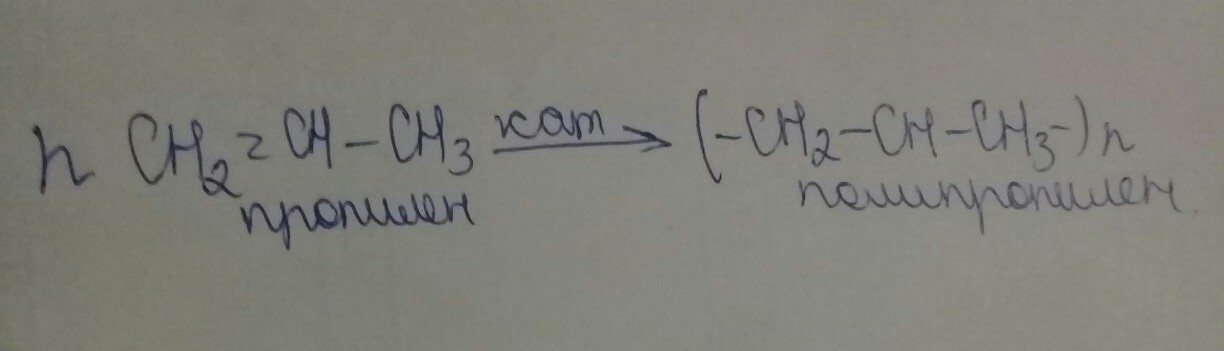 n CH₂=CH-CH₃ кат → (-CH₂-CH-CH₃-)n
пропилен полипропилен